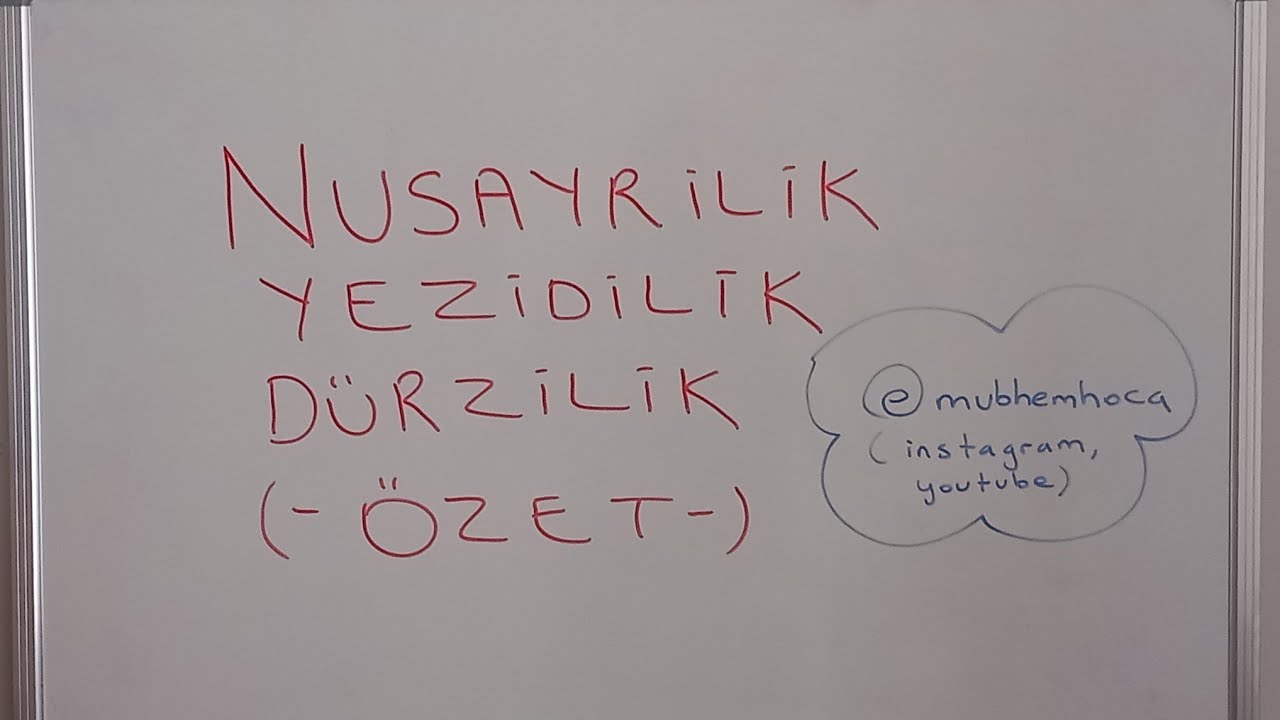 NUSAYRİLİK
YEZİDİLİK
DÜRZİLİK
(-ÖZET-)
@mubhemhoca
(instagram,
youtube)